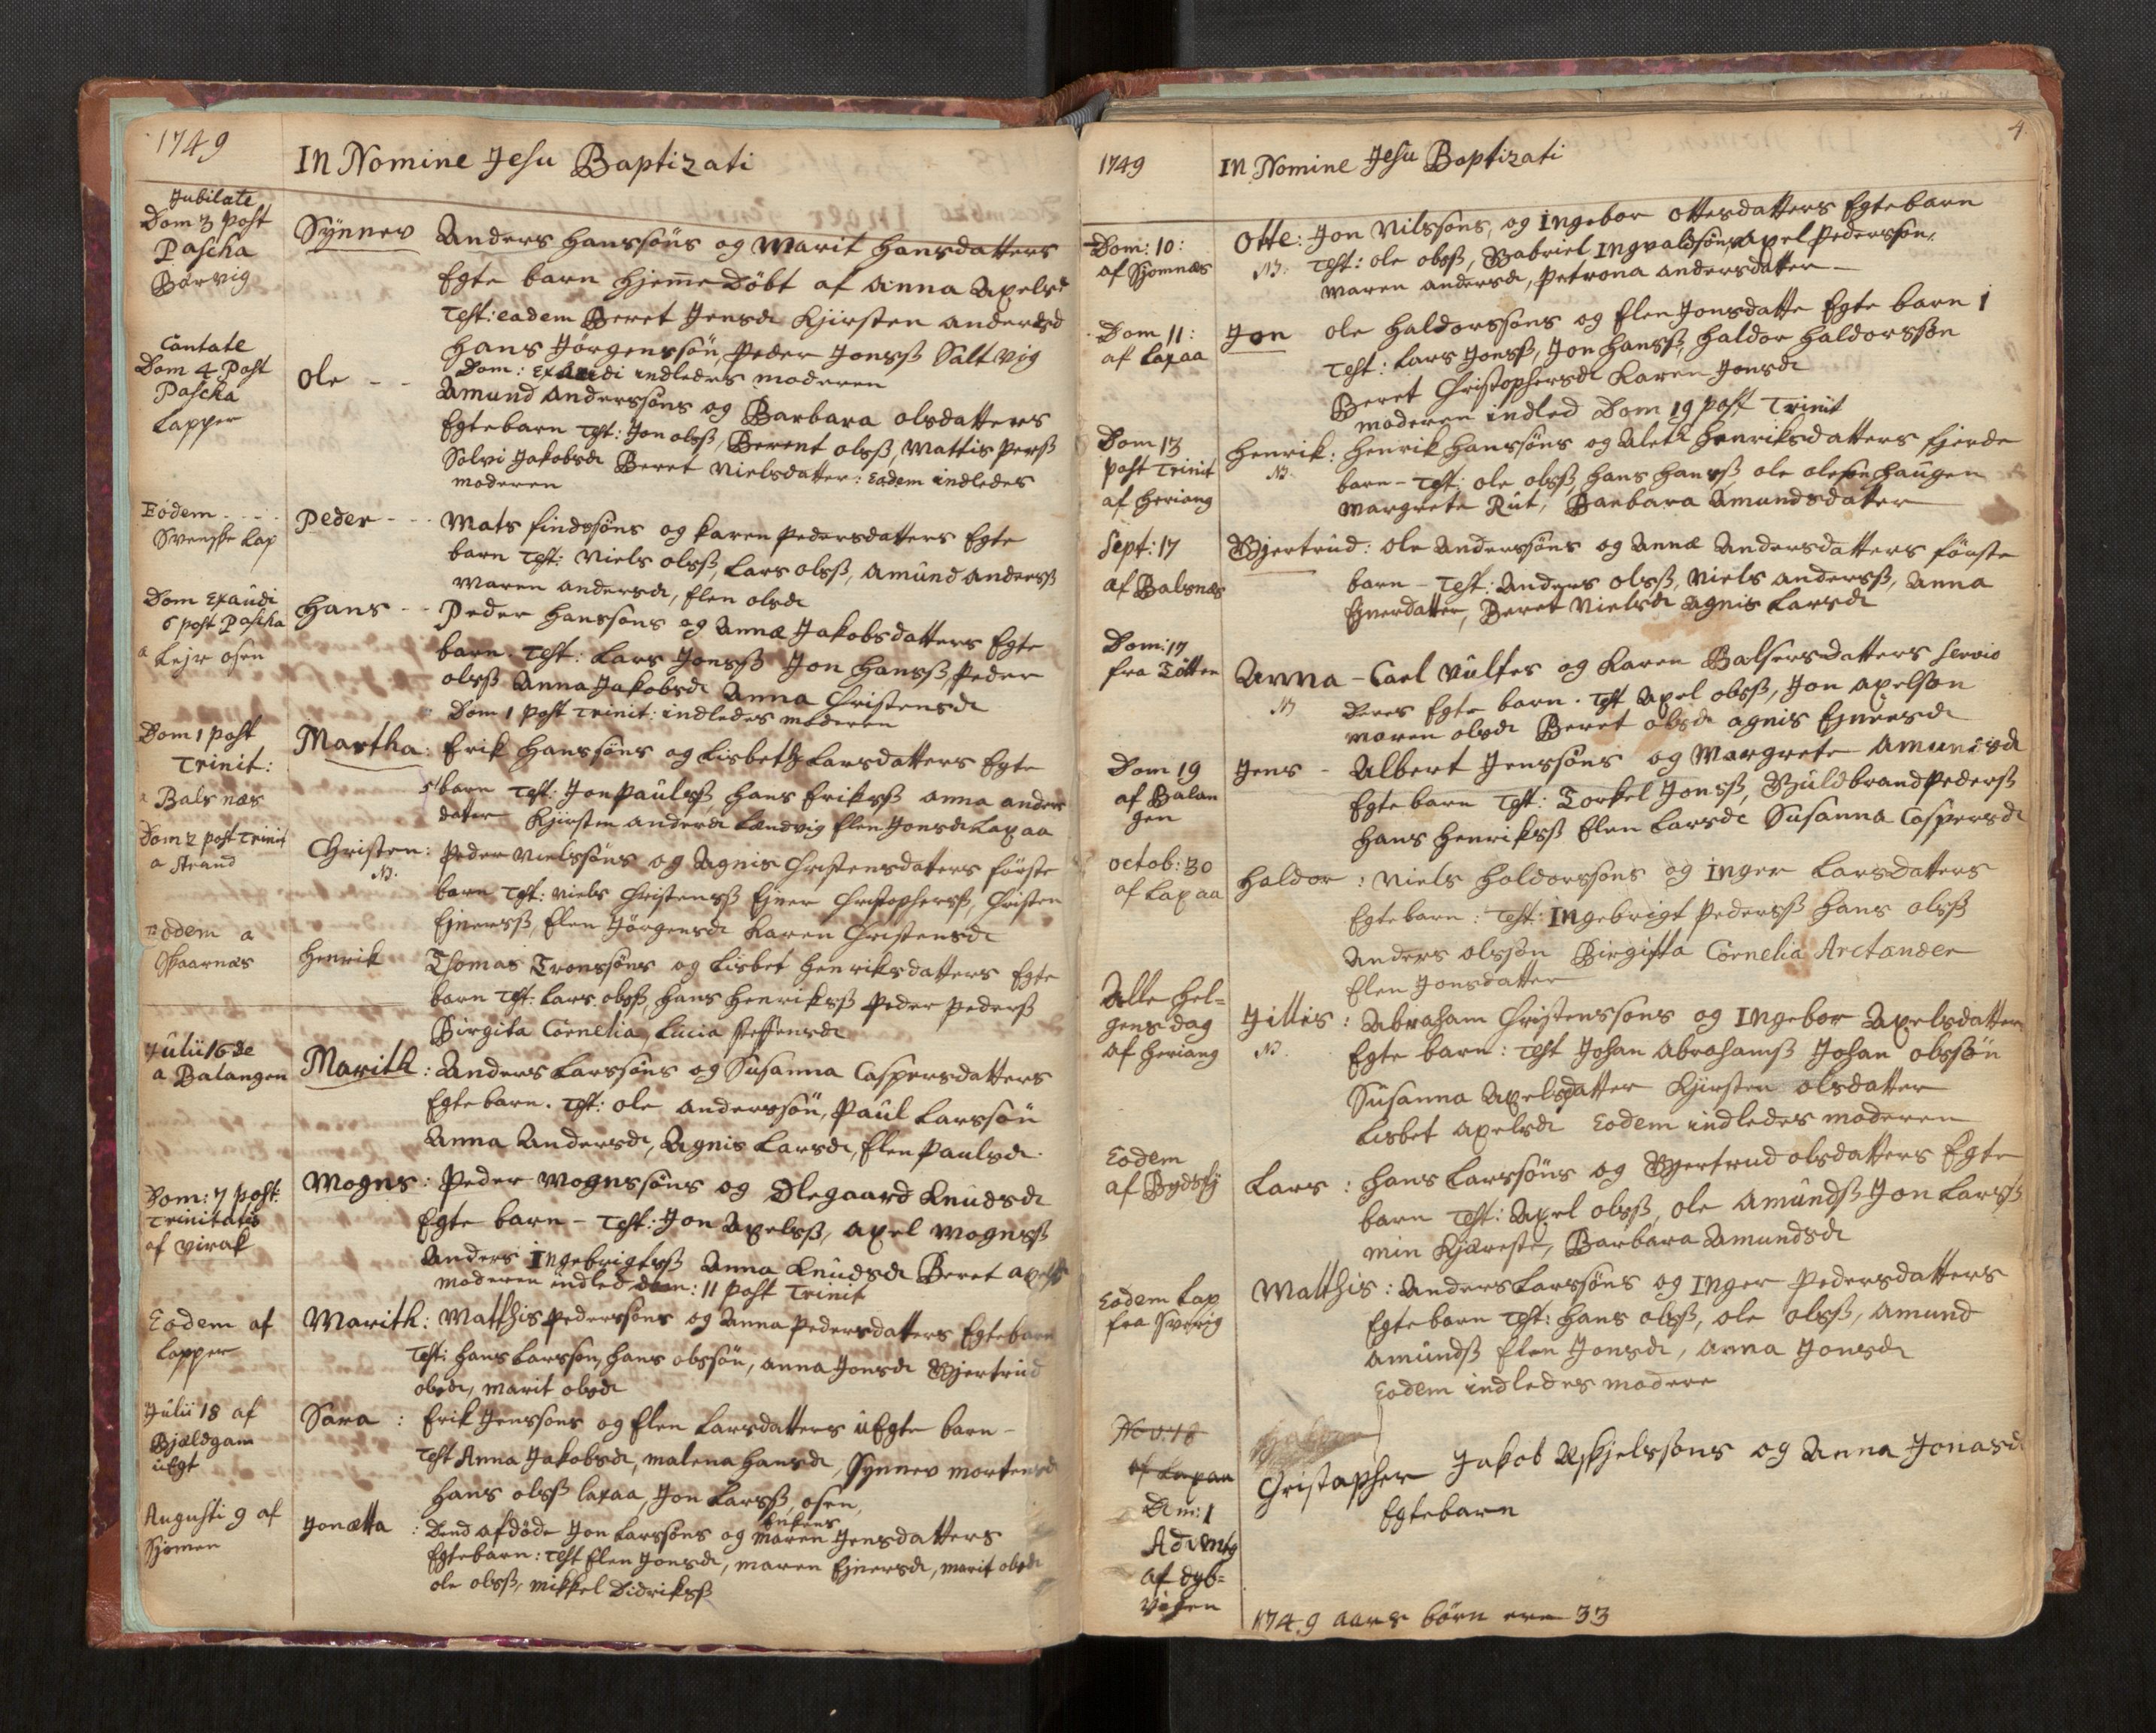 1749
In Nomine Jesu Baptizati
Jubilate
Dom 3 post
Pascha
Børvig
Synnev
Anders Hanssöns og Marit Hansdatters
Egte barn hjem̄e Döbt af Anna Axelsd
Test: eadem Beret Jensd Kjirsten Andersd
Hans Jörgenssön, Peder Jonsß Saltvig
Dom: Exaudi indledes moderen
Cantate
Dom 4 Post
Pascha
Lapper
Ole - -
Amund Anderssöns og Barbara olsdatters
Egtebarn Test: Jon olsß, Berent olsß, Mattis Persß
Solvi Jakobsd Beret Nielsdatter: Eodem indledes
moderen
Eodem - - -
Svenske Lap
Peder - - -
Mats findssöns og Karen Pedersdatters Egte
barn Test: Niels olsß, Lars olsß, Amund Andersß
Maren Andersd, Elen olsd
Dom Exaudi
6 post Pascha
a Lejr osen
Hans - -
Peder Hanssöns og Annæ Jakobsdatters Egte
barn. Test: Lars Jonsß Jon Hansß Peder
olsß Anna Jakobsd Anna Christensd
Dom 1 Post Trinit: indledes moderen
Dom 1 post
Trinit:
a Balsnæs
Martha:
Erik Hanssöns og Lisbeth Larsdatters Egte
barn Test: Jon Paulsß Hans Eriksß Anna Anders
datter Kjirsten Andersd Lændvig Elen Jonsd Laxaa
Dom 2 post Trinit
a Strand
Christen:
NB.
Peder Nielssöns og Agnis Christensdatters förste
barn Test: Niels Christensß Ejner Christophersß, Christen
Ejnersß, Elen Jörgensd Karen Christensd
Eodem a
Skaarnæs
Henrik
Thomas Tronssöns og Lisbet Henriksdatters Egte
barn Test: Lars olsß, Hans Henriksß Peder Pedersß
Birgita Cornelia, Lucia Steffensd
Julii 16de
a Balangen
Marith:
Anders Larssöns og Susanna Caspersdatters
Egtebarn. Test: ole Anderssön, Paul Larssön
Anna Andersd, Agnis Larsd, Elen Paulsd.
Dom: 7 post:
Trinitatis
af Virak
Mogns:
Peder Mognssöns og Olegaard Knudsd
Egte barn - Test: Jon Axelsß, Axel Mognsß
Anders Ingebrigtsß Anna Knudsd Beret Axelsd
moderen indled Dom: 11 Post Trinit
Eodem af
Lapper
Marith:
Matthis Pederssöns og Anna Pedersdatters Egtebarn
Test: Hans Larssön, Hans olssön, Anna Jonsd Gjertrud
olsd, Marit olsd
Julii 18 af
Gjældgam
uEgt
Sara :
Erik Jenssöns og Elen Larsdatters uEgte barn -
Test Anna Jakobsd, Malena Hansd, Synnev Mortensd
Hans olsß laxaa, Jon Larsß, osen,
Augusti 9 af
Sjomen
Jonætta :
Dend afdöde Jon Larssöns og Enkens Maren Jensdatters
Egtebarn: Test Elen Jonsd, Maren Ejnersd, Marit olsd
ole olsß, Mikkel Didriksß
4
1749
In Nomine Jesu Baptizati
Dom: 10:
af Sjomnæs
Otte:
NB.
Jon Nilssöns, og Ingebor Ottesdatters Egtebarn
Test: ole olsß, Gabriel Ingvaldsön, Axel Pederssön,
Maren Andersd, Petrona Andersdatter -
Dom 11:
af Laxaa
Jon
ole Haldorssöns og Elen Jonsdatte Egte barn 1
Test: Lars Jonsß, Jon Hansß, Haldor Haldorssön
Beret Christophersd Karen Jonsd
moderen indled Dom 19 post Trinit
Dom 13
post Trinit
af Heriang
Henrik:
NB.
Henrik Hanssöns og Aleth Henriksdatters fjerde
barn - Test: ole olsß, Hans Hansß, ole olesön Haugen
Margrete Rut, Barbara Amundsdatter
Sept: 17
af Balsnæs
Gjertrud:
ole Anderssöns og Annæ Andersdatters förste
barn - Test: Anders olsß, Niels Andersß, Anna
Ejnerdatter, Beret Nielsd Agnis Larsd
Dom: 17
fra Tötten
Anna -
NB
Carl Vulfes og Karen Balsersdatters
deres Egte barn. Test Axel olsß, Jon Axelson
Maren olsd Beret olsd Agnis Ejnersd
Dom 19
af Balan
gen
Jens -
Albert Jenssöns og Margrete Amundsd
Egtebarn Test: Torkel Jonsß, Guldbrand Pedersß
Hans Henriksß Elen Larsd Susanna Caspersd
Octob: 30
af Laxaa
Haldor :
Niels Haldorssöns og Inger Larsdatters
Egtebarn: Test: Ingebrigt Pedersß Hans olsß
Anders olssön Birgitta Cornelia Arctander
Elen Jonsdatter
Alle Hel=
gens dag
af Heriang
Jillis :
NB.
Abraham Christenssöns og Ingebor Axelsdatters
Egte barn: Test Johan Abrahamsß Johan olssön
Susanna Axelsdatter Kjirsten olsdatter
Lisbet Axelsd Eodem indledes moderen
Eodem
af
Lars :
Hans Larssöns og Gjertrud olsdatters Egte
barn Test: Axel olsß, ole Amundsß Jon Larsß
min Kjæreste, Barbara Amundsd
Eodem Lap
fra Sverig
Matthis :
Anders Larssöns og Inger Pedersdatters
Egtebarn Test: Hans olsß, ole olsß, Amund
Amundsß Elen Jonsd, Anna Jonsd
Eodem indledes modere
Nov: 18
af Laxaa
Dom: 1
Advents
af Dyb=
vigen
Christopher
Jakob Askjelssöns og Anna Jonasd
Egtebarn
1749 aars börn ere 33